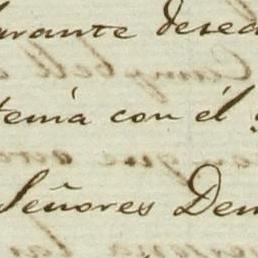 larante desea
tenía con él
Señores Dem